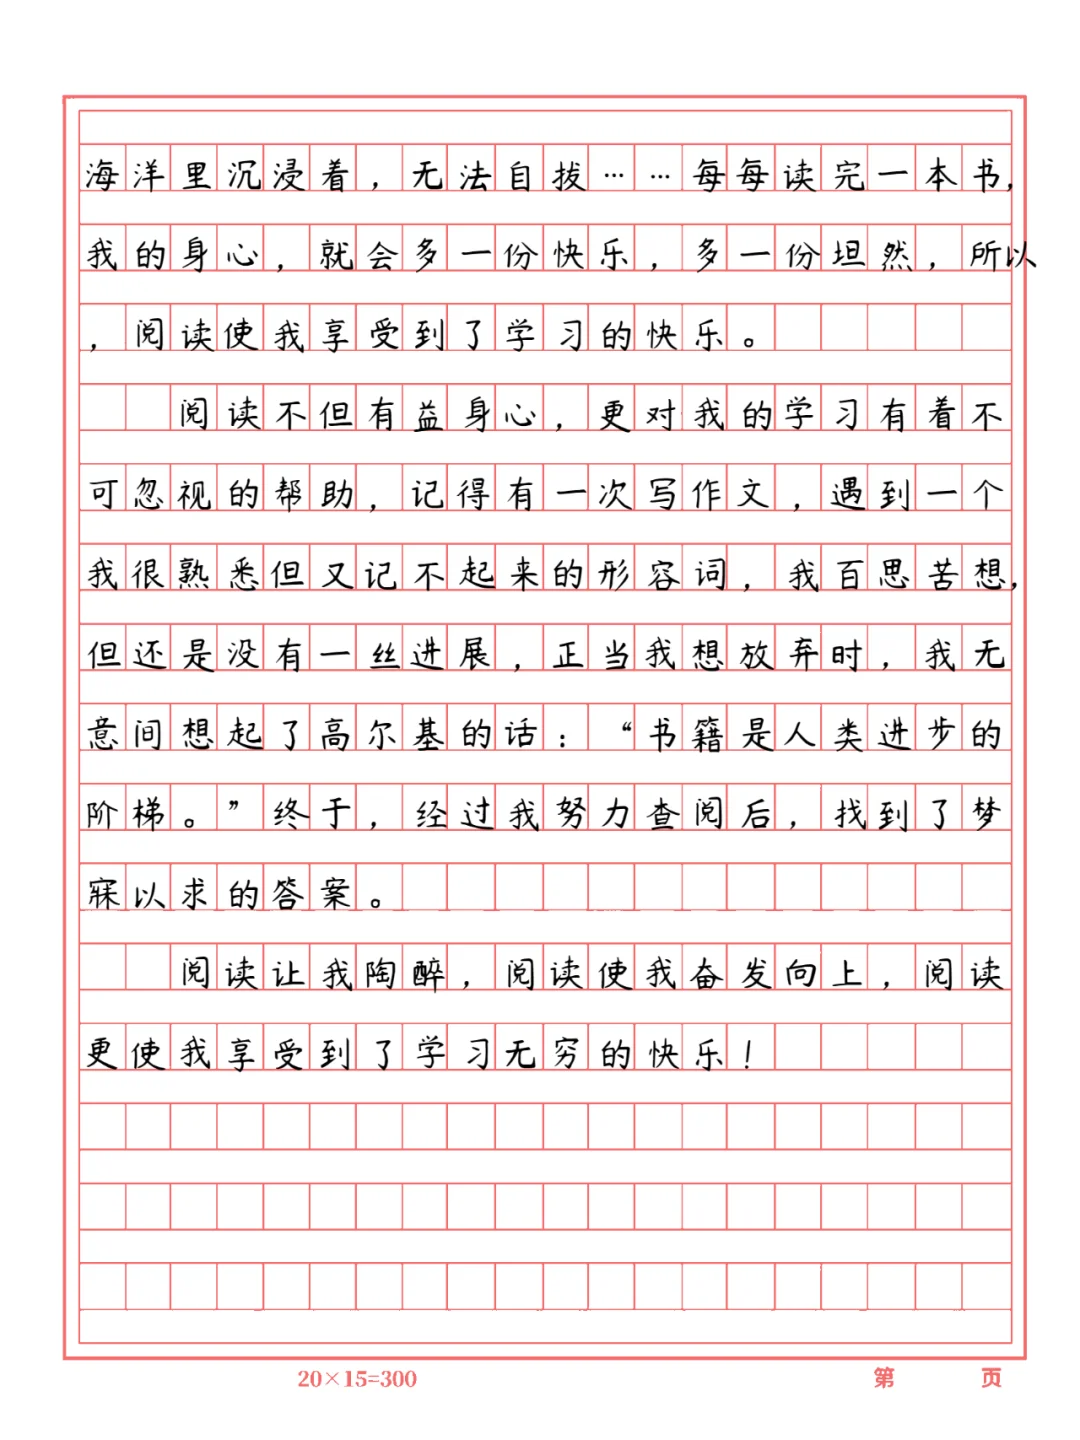 海洋里沉浸着，无法自拔……每每读完一本书，
我的身心，就会多一份快乐，多一份坦然，所以
，阅读使我享受到了学习的快乐。
阅读不但有益身心，更对我的学习有着不
可忽视的帮助，记得有一次写作文，遇到一个
我很熟悉但又记不起来的形容词，我百思苦想，
但还是没有一丝进展，正当我想放弃时，我无
意间想起了高尔基的话：“书籍是人类进步的
阶梯。”终于，经过我努力查阅后，找到了梦
寐以求的答案。
阅读让我陶醉，阅读使我奋发向上，阅读
更使我享受到了学习无穷的快乐！
20×15=300
第 页